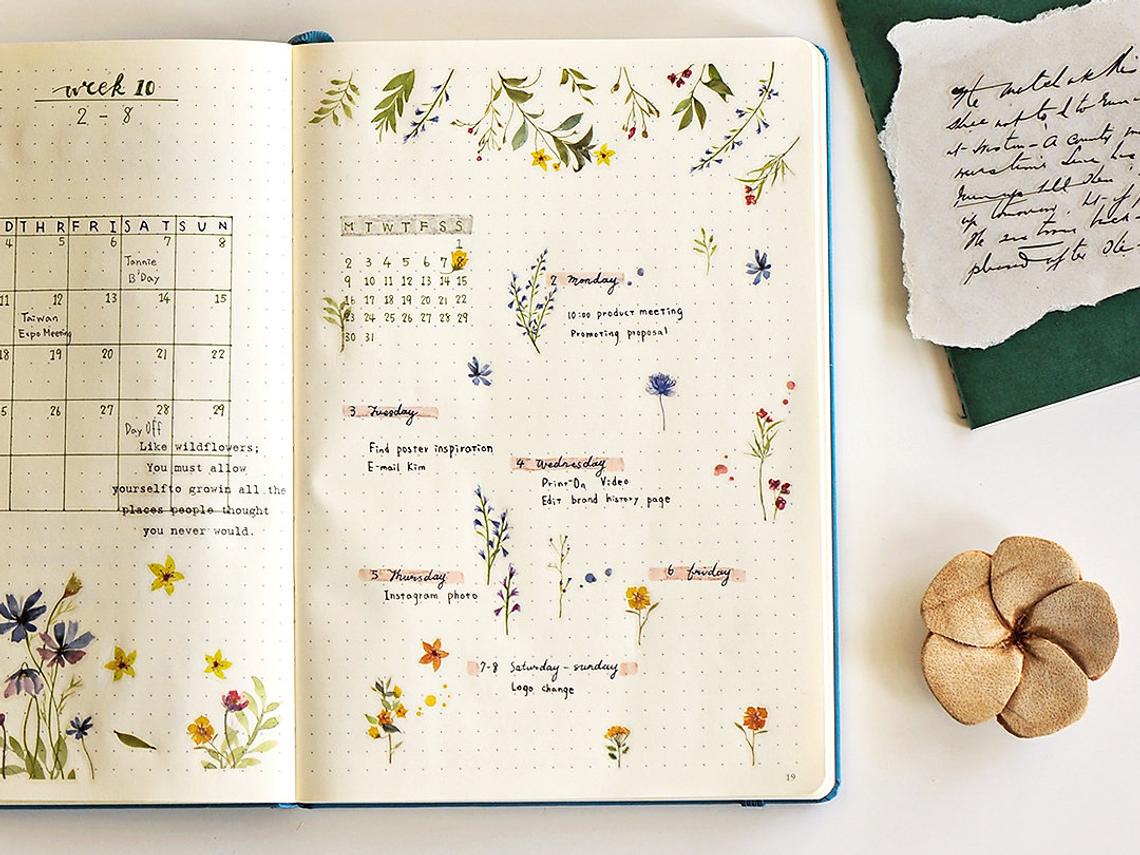 week 10
2 - 8
D THR FRI SAT SUN
4 5 6 7 8
Tannie
B'Day
11 12 13 14 15
Taiwan
Expo Meeting
18 19 20 21 22
5 26 27 28 29
Day Off
Like wildflowers;
You must allow
yourselfto growin all the
places people thought
you never would.
M T W T F S S
1
2 3 4 5 6 7 8
9 10 11 12 13 14 15
16 17 18 19 20 21 22
23 24 25 26 27 28 29
30 31
2 Monday
10:00 product meeting
Promoting proposal
3 Tuesday
Find poster inspiration
E-mail Kim
4 Wednesday
Print-On Video
Edit brand history page
5 Thursday
Instagram photo
6 friday
7-8 Saturday - sunday
Logo change
19